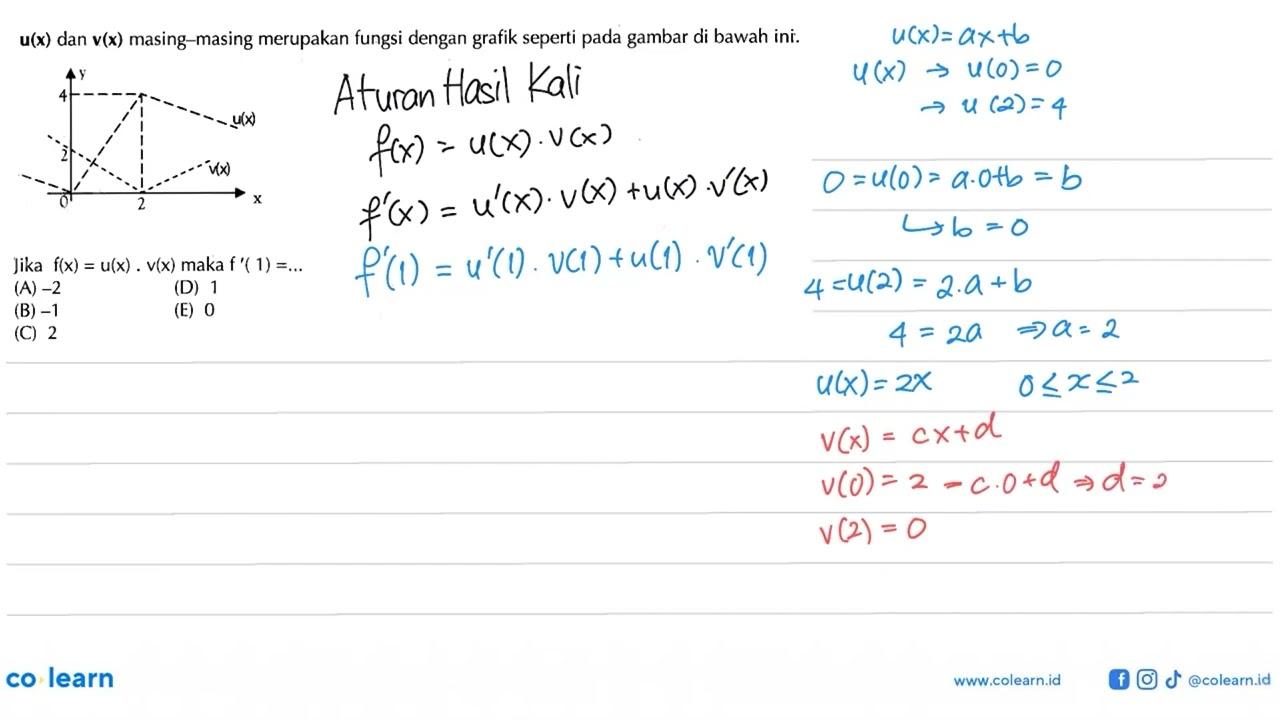 u(x) dan v(x) masing–masing merupakan fungsi dengan grafik seperti pada gambar di bawah ini.
y
4
u(x)
2
v(x)
0
2
x
Jika f(x) = u(x) . v(x) maka f '( 1) =...
(A) –2
(D) 1
(B) –1
(E) 0
(C) 2
Aturan Hasil Kali
f(x) = u(x) . v(x)
f'(x) = u'(x) . v(x) + u(x) . v'(x)
f'(1) = u'(1) . v(1) + u(1) . v'(1)
u(x) = ax+b
u(x) → u(0) = 0
→ u(2) = 4
0 = u(0) = a.0+b = b
↳ b = 0
4 = u(2) = 2.a + b
4 = 2a ⇒ a = 2
u(x) = 2x 0 ≤ x ≤ 2
v(x) = cx+d
v(0) = 2 = c.0+d ⇒ d = 2
v(2) = 0
co learn
www.colearn.id
@colearn.id